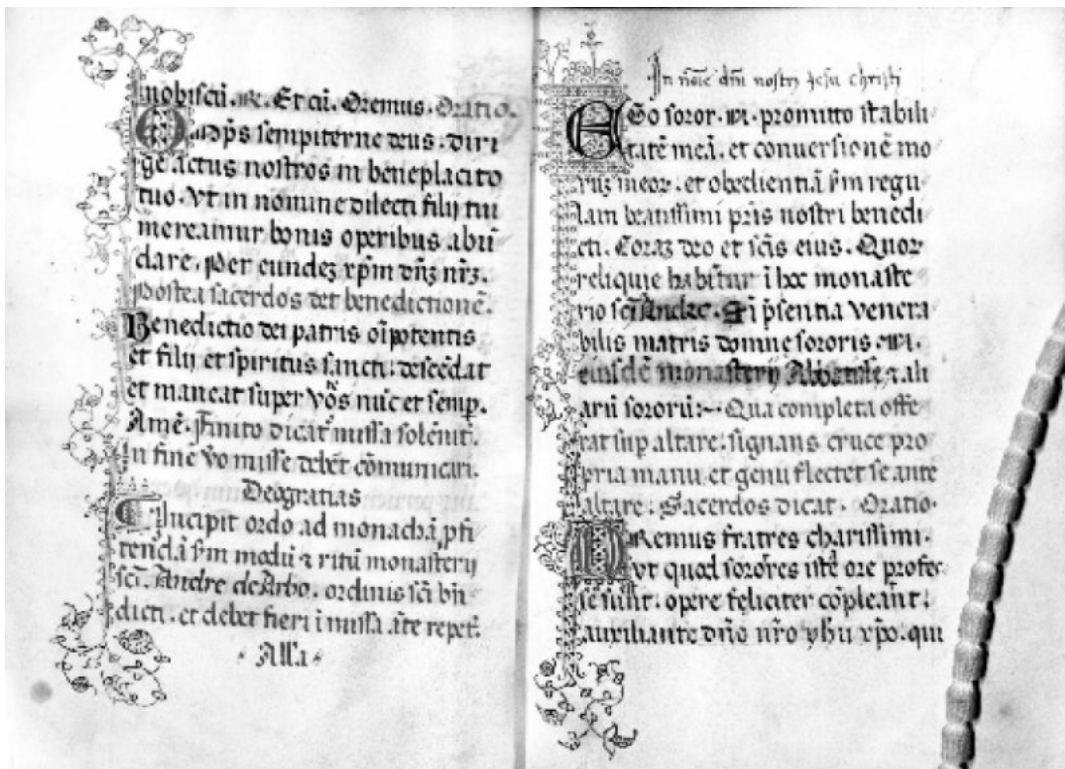 nobiscũ. ℞. Et cũ. Oremus. Oratio.
Omĩps sempiterne deus. diri
ge actus nostros in beneplacito
tuo. Vt in nomine dilecti filij tui
mereamur bonis operibus abũ
dare. Per eundeʒ xp̃m dñʒ nr̃ʒ.
Postea sacerdos det benedictionẽ.
Benedictio dei patris oĩpotentis
et filij et spiritus sancti: descẽdat
et maneat super vos nũc et semp.
Amẽ. Finito dicat᷑ missa solẽnit᷑.
In fine vo misse debẽt cõmunicari.
Deogratias
Incipit ordo ad monachã pfi
tendã s̃m modũ ⁊ ritũ monasterij
sc̃i Andree de Arbo. ordinis sc̃i bñ
dicti. et debet fieri ĩ missa ãte repet᷑.
Alla
In nõie dñi nostrj Jesu christi
EGo soror. N. promitto stabili
tatẽ meã. et conuersionẽ mo
rũʒ meoꝝ. et obedientiã s̃m regu
lam beatissimi pr̃is nostri benedi
cti. Coraʒ deo et sc̃is eius. Quoꝝ
reliquie habẽtur ĩ hoc monaste
rio sc̃i Andree. Et ĩ p̃sentia venera
bilis matris domne sororis. N.
eiusdẽ monasterij Abbatisse, ⁊ ali
arũ sororũ:~ Qua completa offe
rat sup altare. signans cruce pro
pria manu. et genu flectet se ante
altare: Sacerdos dicat. Oratio.
ORemus fratres charissimi.
vt quod sorores iste ore profes
se sunt. opere feliciter cõpleant:
auxiliante dño nr̃o yhũ xp̃o. qui